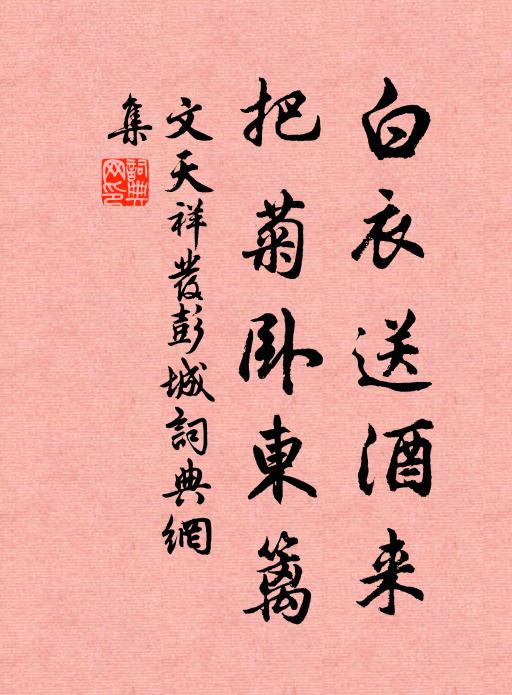 白衣送酒来
把菊卧東篱
文天祥發彭城詞典網
集
詞典
网印